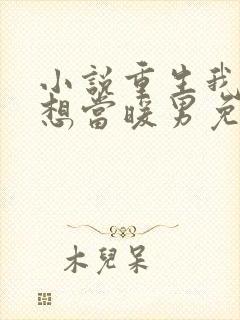 小說重生我
想當暖男免
木兒呆